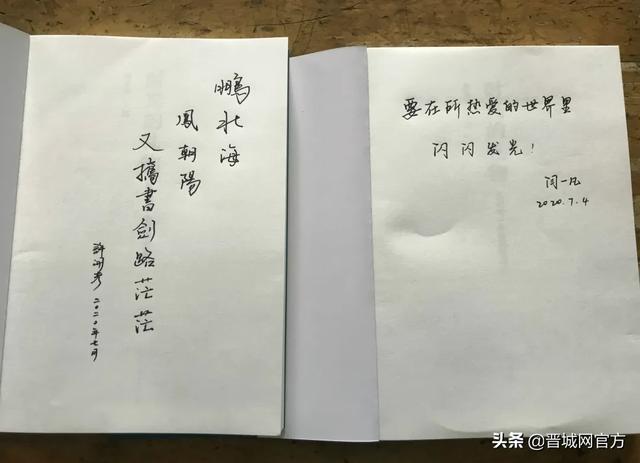 鵬北海
鳳朝陽
又攜書劍路茫茫
二〇二〇年七月
要在所热爱的世界里
闪闪发光！
闫一凡
2020.7.4
头条@晋城网官方